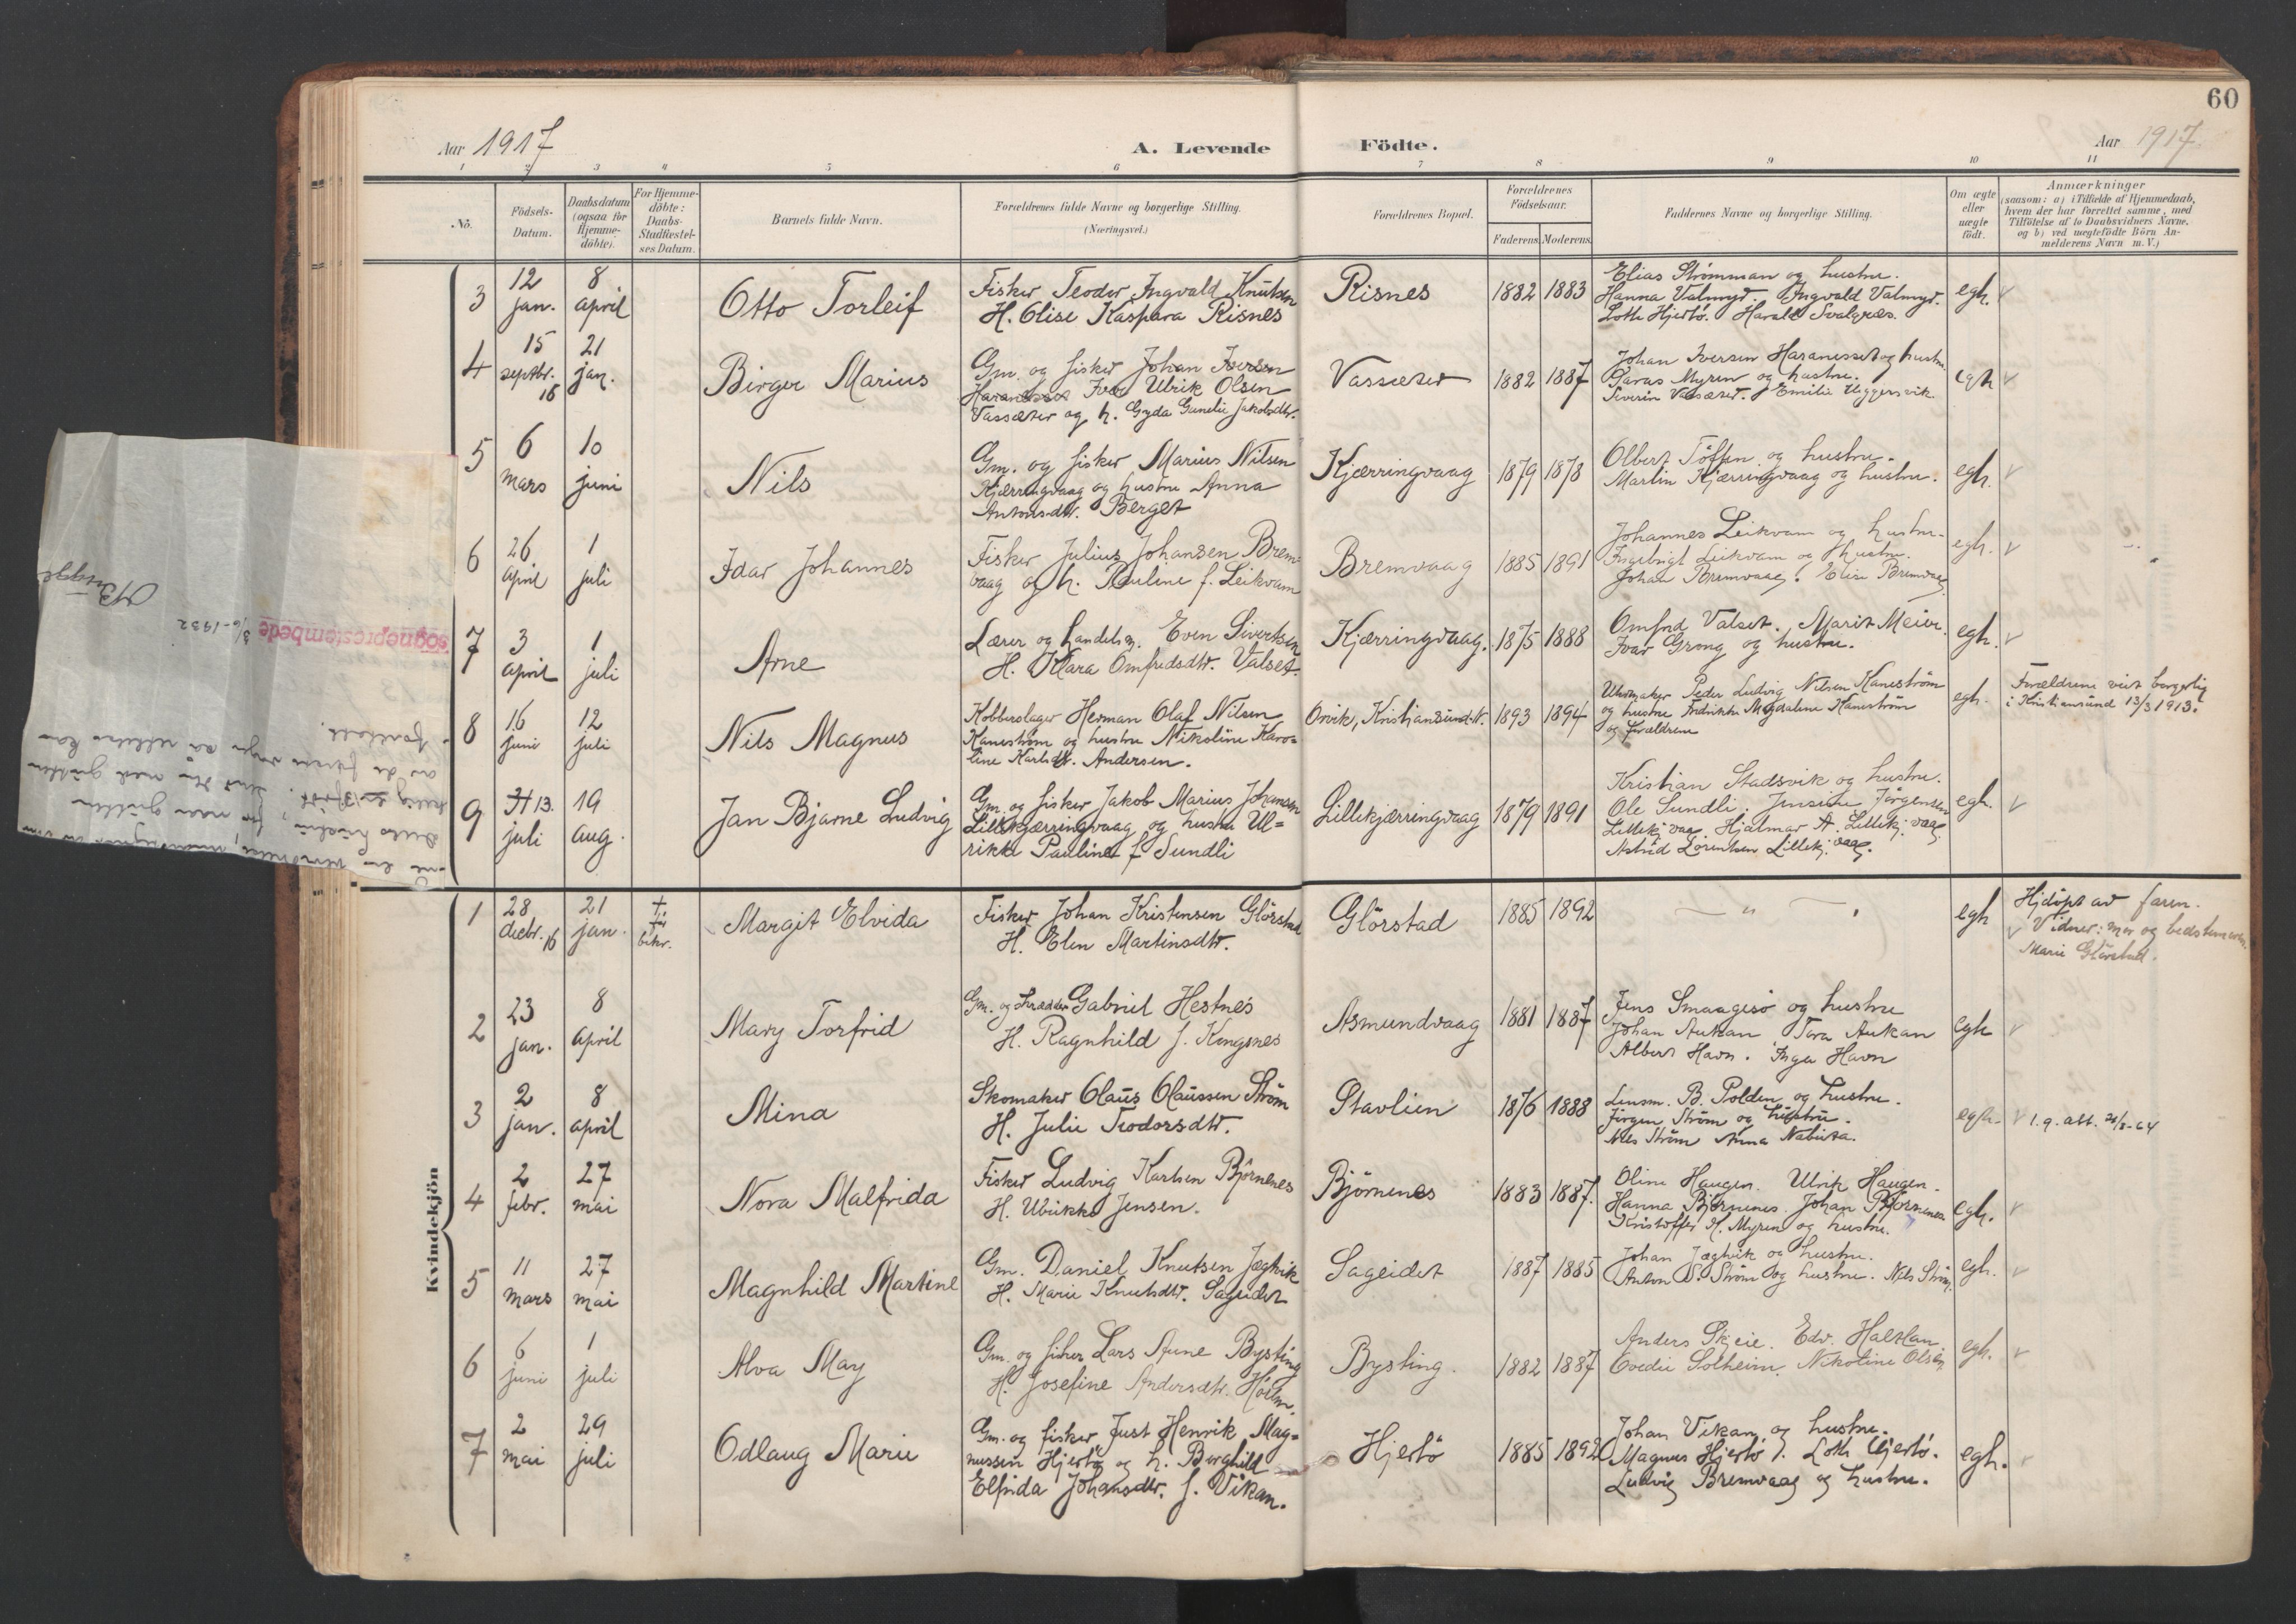 60
Aar 1917
A. Levende Födte.
Aar 1917.
1 2 3 4 5 6 7 8 9 10 11
No.
Födsels-Datum.
Daabsdatum (ogsaa for Hjemme-döbte).
For Hjemme-döbte: Daabs-Stadfæstel-ses Datum.
Barnets fulde Navn.
Forældrenes fulde Navne og borgerlige Stilling.
(Næringsvei.)
Forældrenes Bopæl.
Forældrenes Födselsaar.
Faderens. Moderens.
Faddernes Navne og borgerlige Stilling.
Om ægte eller uægte födt.
Anmærkninger
(saasom: a) i Tilfælde af Hjemmedaab,
hvem der har forrettet samme, med
Tilföielse af to Daabsvidners Navne.
og b) ved uægtefödte Börn An-
melderens Navn m. V.)
3 12 jan. 8 april Otto Torleif
Fisker Teodor Ingvald Knutsen
H. Elise Kaspara Risnes
Risnes 1882 1883
Elias Strömman og hustru.
Hanna Valmyr. Ingvald Valmyr.
Loth Hjertö. Harald Svalgræs.
egh. v
4 15 septbr. 16 21 jan. Birger Marius
Gm. og fisker Johan Iversen
Haranesset Iver Ulrik Olsen
Vassæter og h. Gyda Gunelie Jakobsdtr.
Vassæter 1882 1887
Johan Iversen Haranesset og hustru
Myren og hustru.
Severin Vassæter. Emilie Uggersvik.
egh v
5 6 mars 10 juni Nils
Gm. og fisker Marius Nilsen
Kjærringvaag og hustru Anna
Antonsdtr. Berget
Kjærringvaag 1879 1878
Olbert Töffen og hustru.
Martin Kjærringvaag og hustru.
egh. v
6 26 april 1 juli Idar Johannes
Fisker Julius Johansen Brem-
vaag og h. Pauline f. Leikvam
Bremvaag 1885 1891
Johannes Leikvam og hustru.
Ingebrigt Leikvam og hustru.
Johan Bremvaag. Elise Bremvaag
egh. v
7 3 april 1 juli Arne
Lærer og handelsm. Even Sivertsen
H. Klara Omfredsdtr. Valset.
Kjærringvaag. 1875 1888
Omfred Valset. Marit Meier.
Ivar Grong og hustru.
egh. v
8 16 juni 12 juli Nils Magnus
Kobberslager Herman Olaf Nilsen
Kaneström og hustru Nikoline Karo=
line Karlsdtr. Andersen.
Orvik, Kristiansund N. 1893 1894
Uhrmaker Peder Ludvig Nilsen Kaneström
og hustru Fredrikke Magdalene Kaneström
og forældrene
egh.
Forældrene viet borgerlig
i Kristiansund 13/3 1913.
9 13. juli 19 aug. Jan Bjarne Ludvig
Gm. og fisker Jakob Marius Johansen
Lillekjærringvaag og hustru Ul=
rikke Pauline f. Sundli
Lillekjærringvaag 1879 1891
Kristian Stadsvik og hustru.
Ole Sundli. Jensine Jörgensen
Lillekj.vaag. Hjalmar A. Lillekj.vaag.
Astrid Lorentsen Lillekj.vaag.
egh. v
Kvindekjön
1 28 decbr. 16 21 jan. † för bekr. Margit Elvida
Fisker Johan Kristensen Glörstad
H. Elen Martinsdtr.
Glörstad 1885 1892
— " —
egh
Hjdöpt av faren.
v Vidner: mor og bedstemoren
Marie Glörstad.
2 23 jan. 8 april Mary Torfrid
Gm. og skrædder Gabriel Hestnes
H. Ragnhild f. Kongsnes
Asmundvaag 1881 1887
Jens Smaagesö og hustru
Johan Aukan Tora Aukan
Albert Havn. Inga Havn
egh v
3 2 jan. 8 april Mina
Skomaker Olaus Olaussen Ström
H. Julie Teodorsdtr.
Stavlien 1876 1888
Lensm. B. Polden og hustru.
Jörgen Ström og hustru.
Nils Ström Anna
egh. v 1.g. att. 21/8-64
4 2 febr. 27 mai Nora Malfrida
Fisker Ludvig Karlsen Björnenes
H. Ulrikke Jensen.
Björnenes 1883 1887.
Oline Haugen. Ulrik Haugen.
Hanna Björnenes. Johan Björnenes
Kristoffer H. Myren og hustru.
egh. v
5 11 mars 27 mai Magnhild Martine
Gm. Daniel Knutsen Jægtvik
H. Marie Knutsdtr. Sageidet
Sageidet 1887 1885
Johan Jægtvik og hustru.
Anton O. Ström og hustru. Nils Ström.
egh. v
6 6 juni 1 juli Alva May
Gm. og fisker Lars Aune Bysting
H. Josefine Andersdtr. Holm.
Bysting. 1882 1887
Anders Skjeie. Edv. Haltlan
Ovedie Solheim. Nikoline Olsen
egh. v
7 2 mai 29 juli Odlaug Marie
Gm. og fisker Just Henrik Mag=
nussen Hjertö og h. Borghild
Elfrida Johansdtr. f. Vikan.
Hjertö 1885 1892
Johan Vikan og hustru.
Magnus Hjertö. Loth Hjertö.
Ludvig Bremvaag og hustru.
egh. v
sogneprestembede
3/6-1932